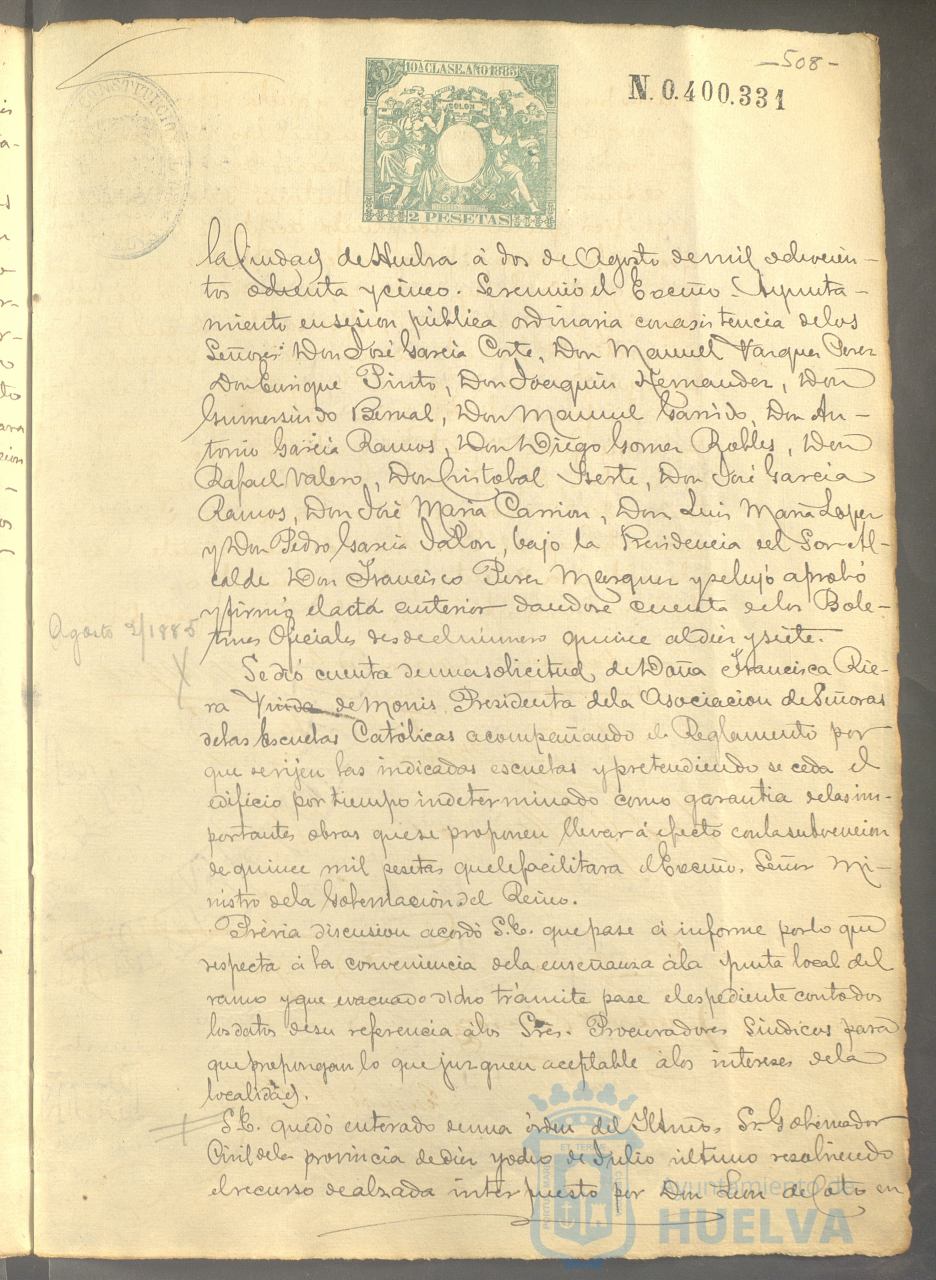 -508-
10ª CLASE. AÑO 1885
COLON
2 PESETAS
N. 0.400.331
CONSTITUCIO
la Ciudad de Huelva á dos de Agosto de mil ochocien-
tos ochenta y cinco. Se reunió el Excmo. Ayunta-
miento en sesion pública ordinaria con asistencia de los
Señores Don José Garcia Corte, Don Manuel Vazquez Perez
Don Enrique Pinto, Don Joaquin Hernandez, Don
Gumersindo Bernal, Don Manuel Garrido, Don An-
tonio Garcia Ramos, Don Diego Gomez Robles, Don
Rafael Valero, Don Cristobal Iserte, Don José Garcia
Ramos, Don José Maria Carrion, Don Luis Maria Lopez
y Don Pedro Garcia Jalon, bajo la Presidencia del Sor Al-
calde Don Francisco Perez Marquez y se leyó aprobó
y firmó el acta anterior dandose cuenta de los Bole-
tines Oficiales desde el número quince al diez y siete.
Agosto 2/1885
Se dió cuenta de una solicitud de Doña Francisca Rie-
ra Viuda de Monis Presidenta de la Asociacion de Señoras
de las Escuelas Católicas acompañando el Reglamento por
que se rijen las indicadas escuelas y pretendiendo se ceda el
edificio por tiempo indeterminado como garantia de las im-
portantes obras que se proponen llevar á efecto con la subvencion
de quince mil pesetas que le facilitara el Excmo. Señor Mi-
nistro de la Gobernación del Reino.
Prévia discusion acordó S.E. que pase á informe por lo que
respecta á la conveniencia de la enseñanza á la junta local del
ramo y que evacuado dicho trámite pase el espediente con todos
los datos de su referencia á los Sres. Procuradores Sindicos para
que propongan lo que juzguen aceptable á los intereses de la
localidad.
S.E. quedó enterado de una órden del Iltmo. Sr. Gobernador
Civil de la provincia de diez y ocho de Julio último resolviendo
el recurso de alzada interpuesto por Don Leon de Coto en
Ayuntamiento de
HUELVA